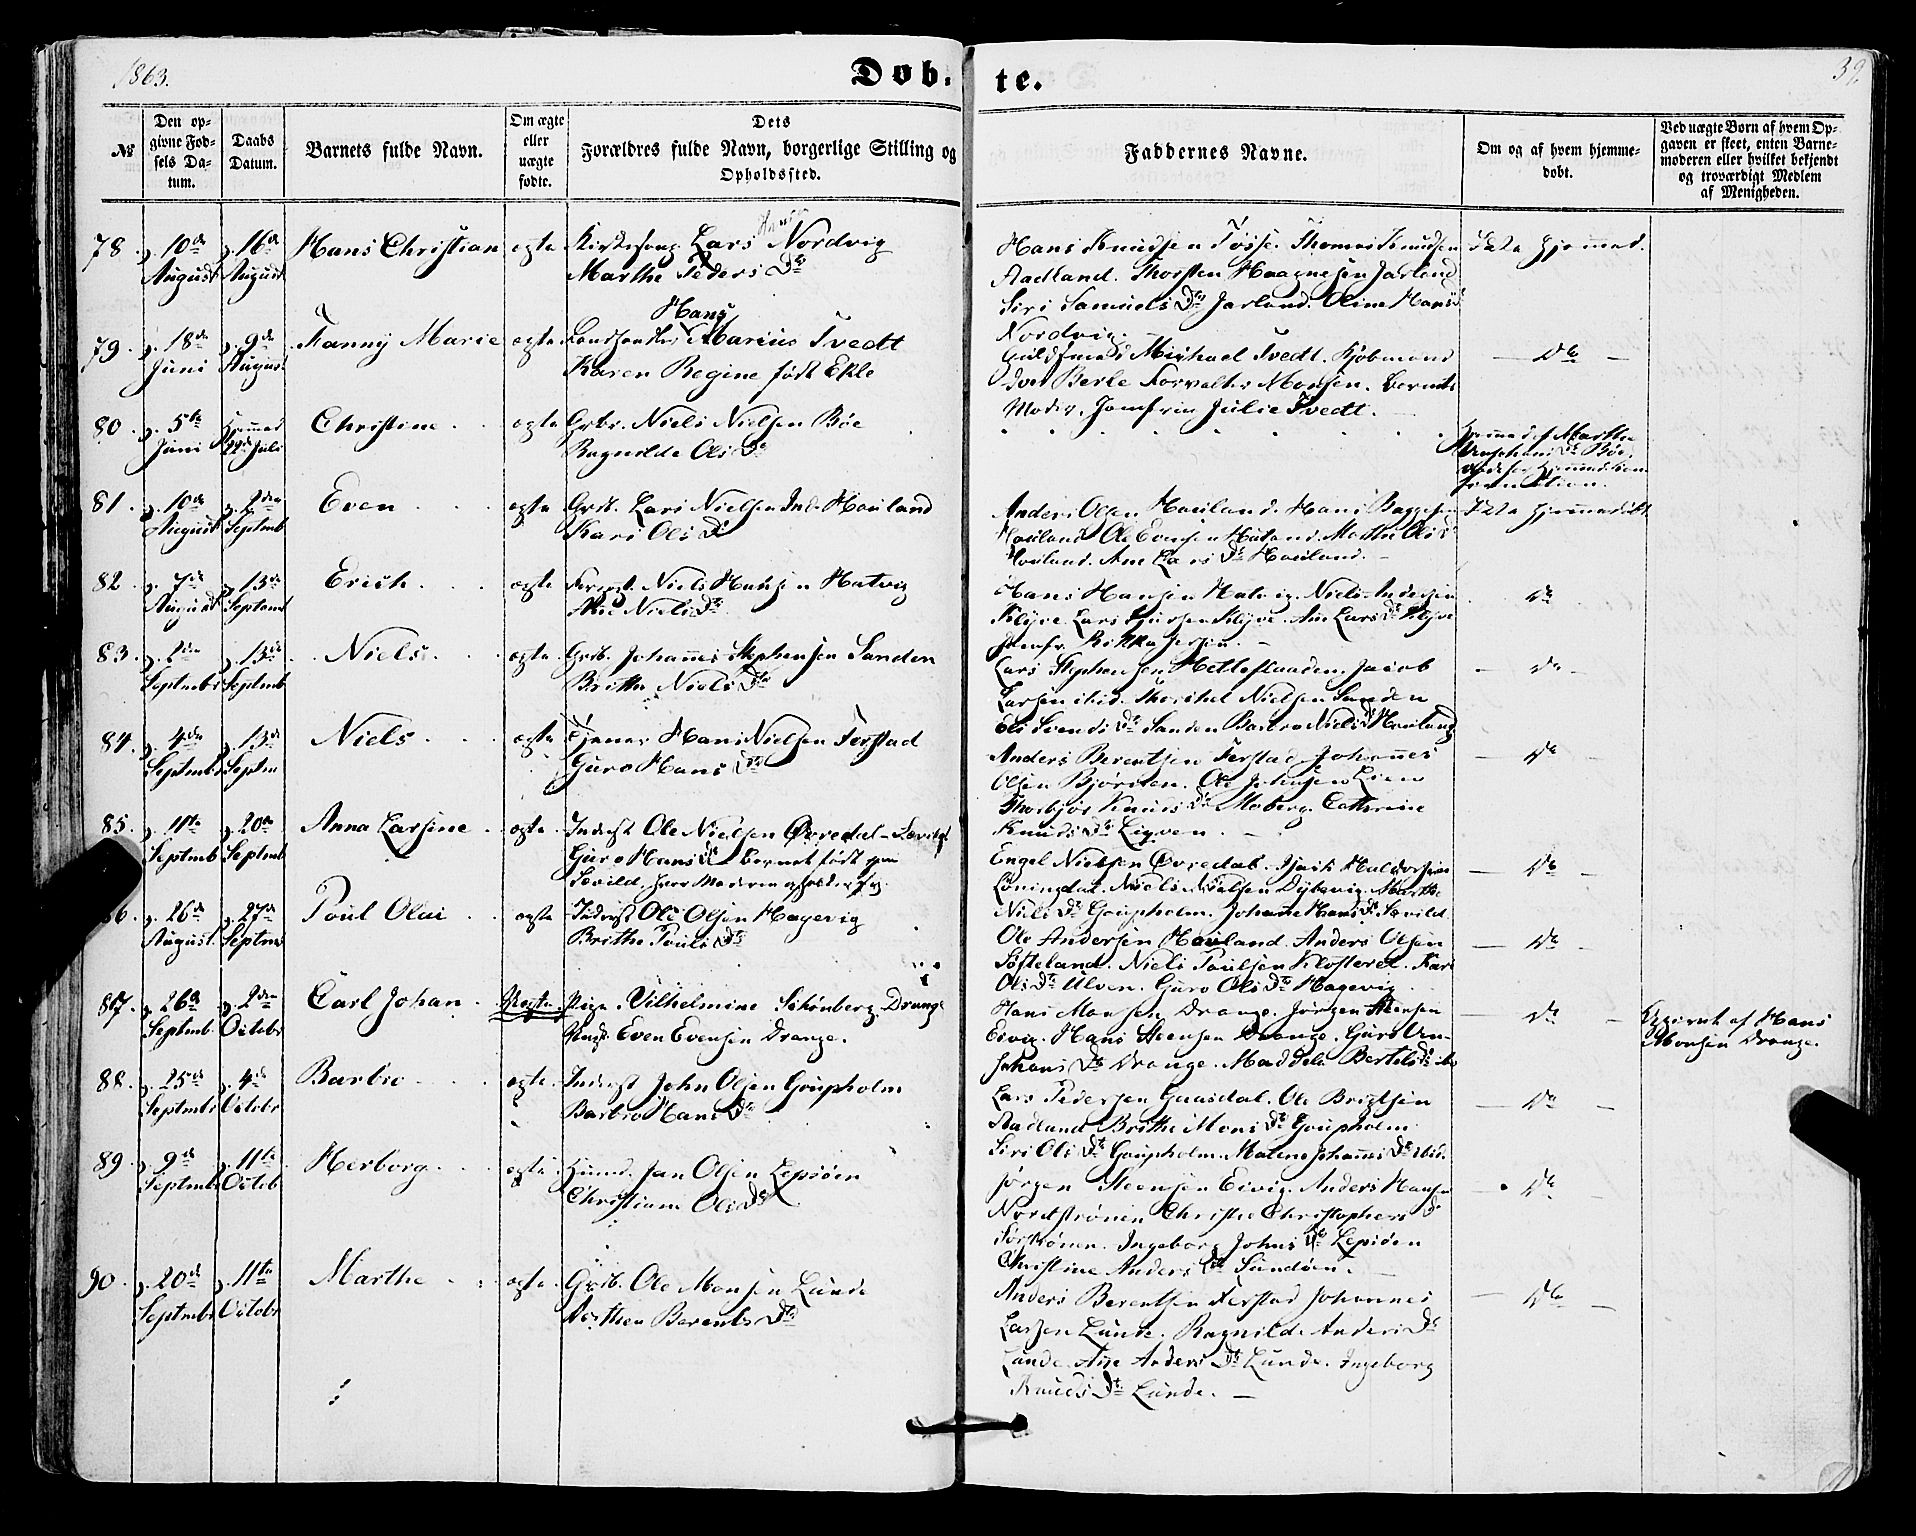 1863.
Dob- te.
39
№
Den opgivne Fødsels Datum.
Daabs Datum.
Barnets fulde Navn.
Om ægte eller uægte fødte.
Dets Forældres fulde Navn, borgerlige Stilling og Opholdssted.
Faddernes Navne.
Om og af hvem hjemmedøbt.
Ved uægte Børn af hvem Opgaven er skeet, enten Barnemoderen eller hvilket bekjendt og troværdigt Medlem af Menigheden.
78. d. 10de August d. 16de August Hans Christian ægte Kirkesang. Lars Hans Nordvig
Marthe Peders Dtr
Hans Knudsen Tøsse. Thomas Knudsen
Aadland. Thorsten Haagnesen Jarland
Siri Samuels Dtr Jarland. Oline Hans Dtr
Nordvig.
Ikke hjemmed.
79. d. 18de Juni d. 9de August Fanny Marie ægte Landhandler Hans Marius Tvedt
Karen Regine født Ekle
Michael Tvedt. Kjøbmand
Berle Forvalter Monsen. Barnets
Moder. Jomfru Julie Tvedt.
Do
80. d. 5te Juni Hjemmed 22de Juli Christine ægte Grbr. Niels Nielsen Bøe
Ragnilde Ols Dtr
Hjemmed af Marthe
Dtr Bøe
81. d. 10de August d. 2den Septmb Even ægte Grdb. Lars Nielsen Indr Hauland
Kari Ols Dtr
Anders Olsen Hauland. Hans
Hauland Ole Evensen Marthe Ols Dtr
Hauland. Ane Lars Dtr Hauland.
Ikke hjemmedøbt
82. d. 7de August d. 13de Septemb Erich ægte Niels Hansen Hatvig
Ane Niels Dtr
Hans Hansen Hatvig. Niels Andersen
Klyve. Lars Klyve. Ane Lars Dtr Klyve
Jomfr.
Do
83. d. 2den Septmbr d. 13de Septmb Niels ægte Grdb. Johannes Stephensen Sanden
Britha Niels Dtr
Lars Stephensen Hetlestaaden. Jacob
Larsen ibid. Nielsen Sanden
Eli Svends Dtr Sanden Barbro Niels Dtr Hauland
Do
84. d. 4de Septmbr d. 13de Septm Niels ægte Tjener Hans Nielsen Ferstad
Guro Hans Dtr
Anders Berentsen Ferstad Johannes
Olsen Bjørnen. Ole Johnsen Lien
Thorbjør Knuds Dtr Moberg. Cathrine
Knuds Dtr Ligven.
Do
85. d. 11te Septmb d. 20de Septmb Anna Larsine ægte Inderst Ole Nielsen Øvredal - Sævild
Guro Hans Dtr Barnet født paa
Sævild, hvor Moderen opholder sig.
Engel Nielsen Øvredal. Haldorsen
Løningdal. Niels Nielsen Dybevig. Marthe
Niels Dtr Goupholm. Johanne Hans Dtr Sævild
Do
86 d. 26de August d. 27de Septmb Poul Olai ægte Inderst Ole Olsen Hagevig
Brithe Pouls Dtr
Ole Andersen Hauland. Anders Olsen
Søfteland. Niels Poulsen Klosteret. Kari
Ols Dtr Ulven. Guro Ols Dtr Hagevig
Do
87. d. 26de Septmb d. 2den Octobr Carl Johan Uægte Pige Vilhelmine Schønberg Drange
Ungk. Even Evensen Drange.
Hans Monsen Drange. Jørgen Steensen
Eivig. Hans Steensen Drange. Guro
Johans Dtr Drange. Maddele Bertels Dtr ib.
Do
Opgivet af Hans
Monsen Drange.
88. d. 25de Septmbr d. 4de Octobr Barbro ægte Inderst John Olsen Goupholm
Barbro Hans Dtr
Lars Pedersen Guasdal. Ole Brigtsen
Aadland Brithe Mons Dtr Goupholm.
Siri Ols Dtr Goupholm. Malene Johannes Dtr ibid.
Do
89 d. 9de Septmbr d. 11te Octob Herborg ægte Huusmd. Jan Olsen Lepsøen
Christiane Ols Dtr
Jørgen Steensen Eivig. Anders Hansen
Nordstrønen Christi Christophers Dtr
Sørstrønen. Ingeborg Johns Dtr Lepsøen
Christine Anders Dtr Sundøen.
Do
90. d. 20de Septmbr d. 11te Octobr Marthe ægte Grdb. Ole Monsen Lunde
Berents Dtr
Anders Berentsen Ferstad Johannes
Larsen Lunde. Ragnilde Anders Dtr
Lunde. Ane Anders Dtr Lunde. Ingeborg
Knuds Dtr Lunde.
Do